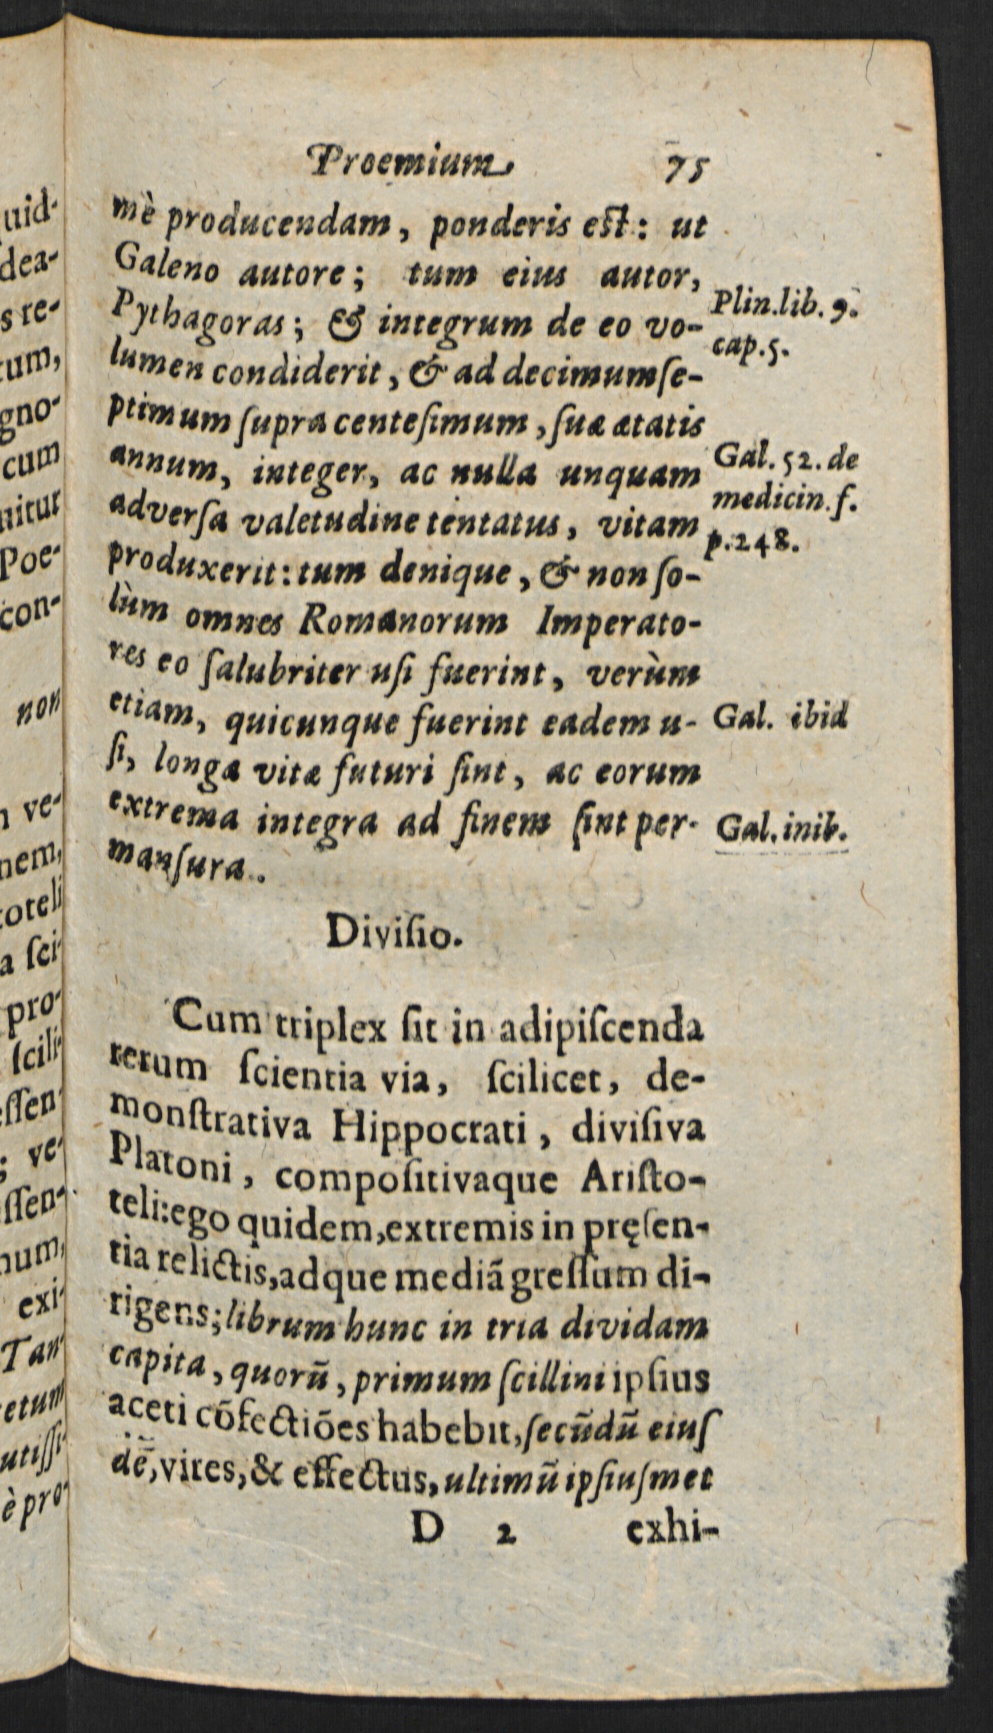 Proemium 75
mè producendam, ponderis est: ut
Galeno autore; tum eius autor,
Pythagoras; & integrum de eo vo-
lumen condiderit, & ad decimumſe-
ptimum ſupra centeſimum, ſuæ ætatis
annum, integer, ac nulla unquam
adverſa valetudine tentatus, vitam
produxerit: tum denique, & non ſo-
lùm omnes Romanorum Imperato-
res eo ſalubriter uſi fuerint, verùm
etiam, quicunque fuerint eadem u-
ſi, longa vitæ futuri ſint, ac eorum
extrema integra ad finem ſint per-
manſura.
Plin.lib. 9.
cap.5.
Gal. 52. de
medicin. ſ.
p.248.
Gal. ibid
Gal. inib.
Diviſio.
Cum triplex ſit in adipiſcenda
rerum ſcientia via, ſcilicet, de-
monſtrativa Hippocrati, diviſiva
Platoni, compoſitivaque Ariſto-
teli: ego quidem, extremis in pręſen-
tia relictis, adque mediã greſſum di-
rigens; librum hunc in tria dividam
capita, quorũ, primum ſcillini ipſius
aceti cõfectiões habebit, ſecũdũ eiuſ
dẽ, vires, & effectus, ultimũ ipſiuſmet
D 2 exhi-
uid-
dea-
s re-
tum,
gno-
cum
nitur
Poe-
con-
non
ve-
nem,
toteli
a ſci-
pro-
ſcili-
eſſen-
; ve-
eſſen-
num,
exi-
Tan-
etum
utiſſi-
è pro-